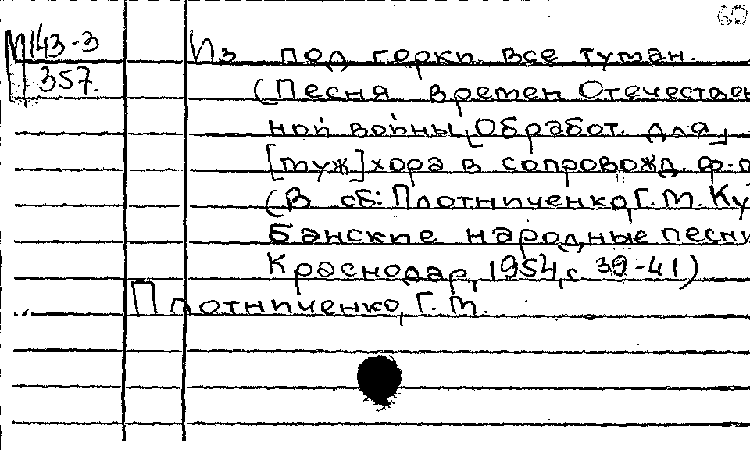 60
М143-3 Из под горки все туман.
357. (Песня времен Отечествен
ной войны, [Обработ. для]
[муж] хора в сопровожд. ф-п
(В сб: Плотниченко, Г. М. Ку
банские народные песни
Краснодар, 1954, с. 39-41)
Плотниченко, Г. М.